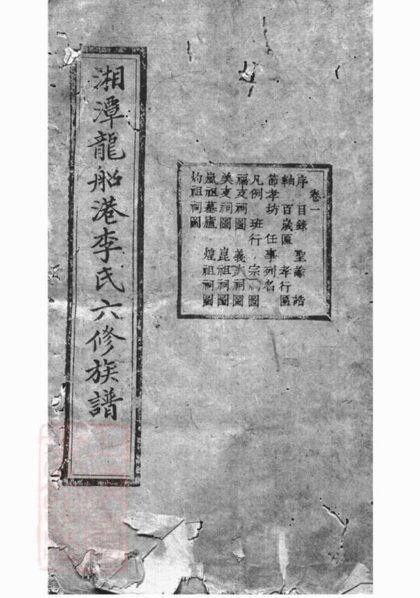 湘潭龍船港李氏六修族譜
卷一
序 目錄 聖諭 誥
軸 百歲匾 孝行匾
節孝坊 任事列名
凡例 班行 宗 圖
福支祠圖 義支祠圖
美支祠圖 崑祖祠圖
嵐祖墓廬 煌祖祠圖
灼祖祠圖